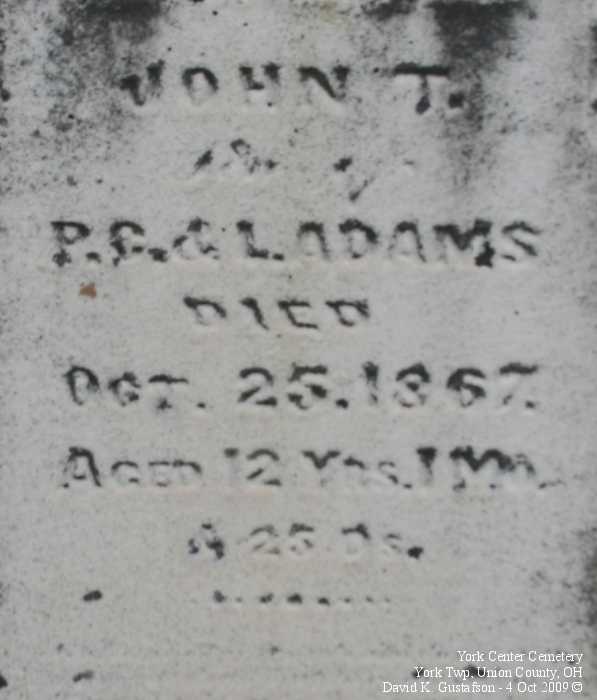 JOHN T.
Son of
P. C. & L. ADAMS
DIED
OCT. 25. 1867.
AGED 12 YRS. 1 MO.
& 25 DS.
York Center Cemetery
York Twp, Union County, OH
David K. Gustafson - 4 Oct 2009 ©